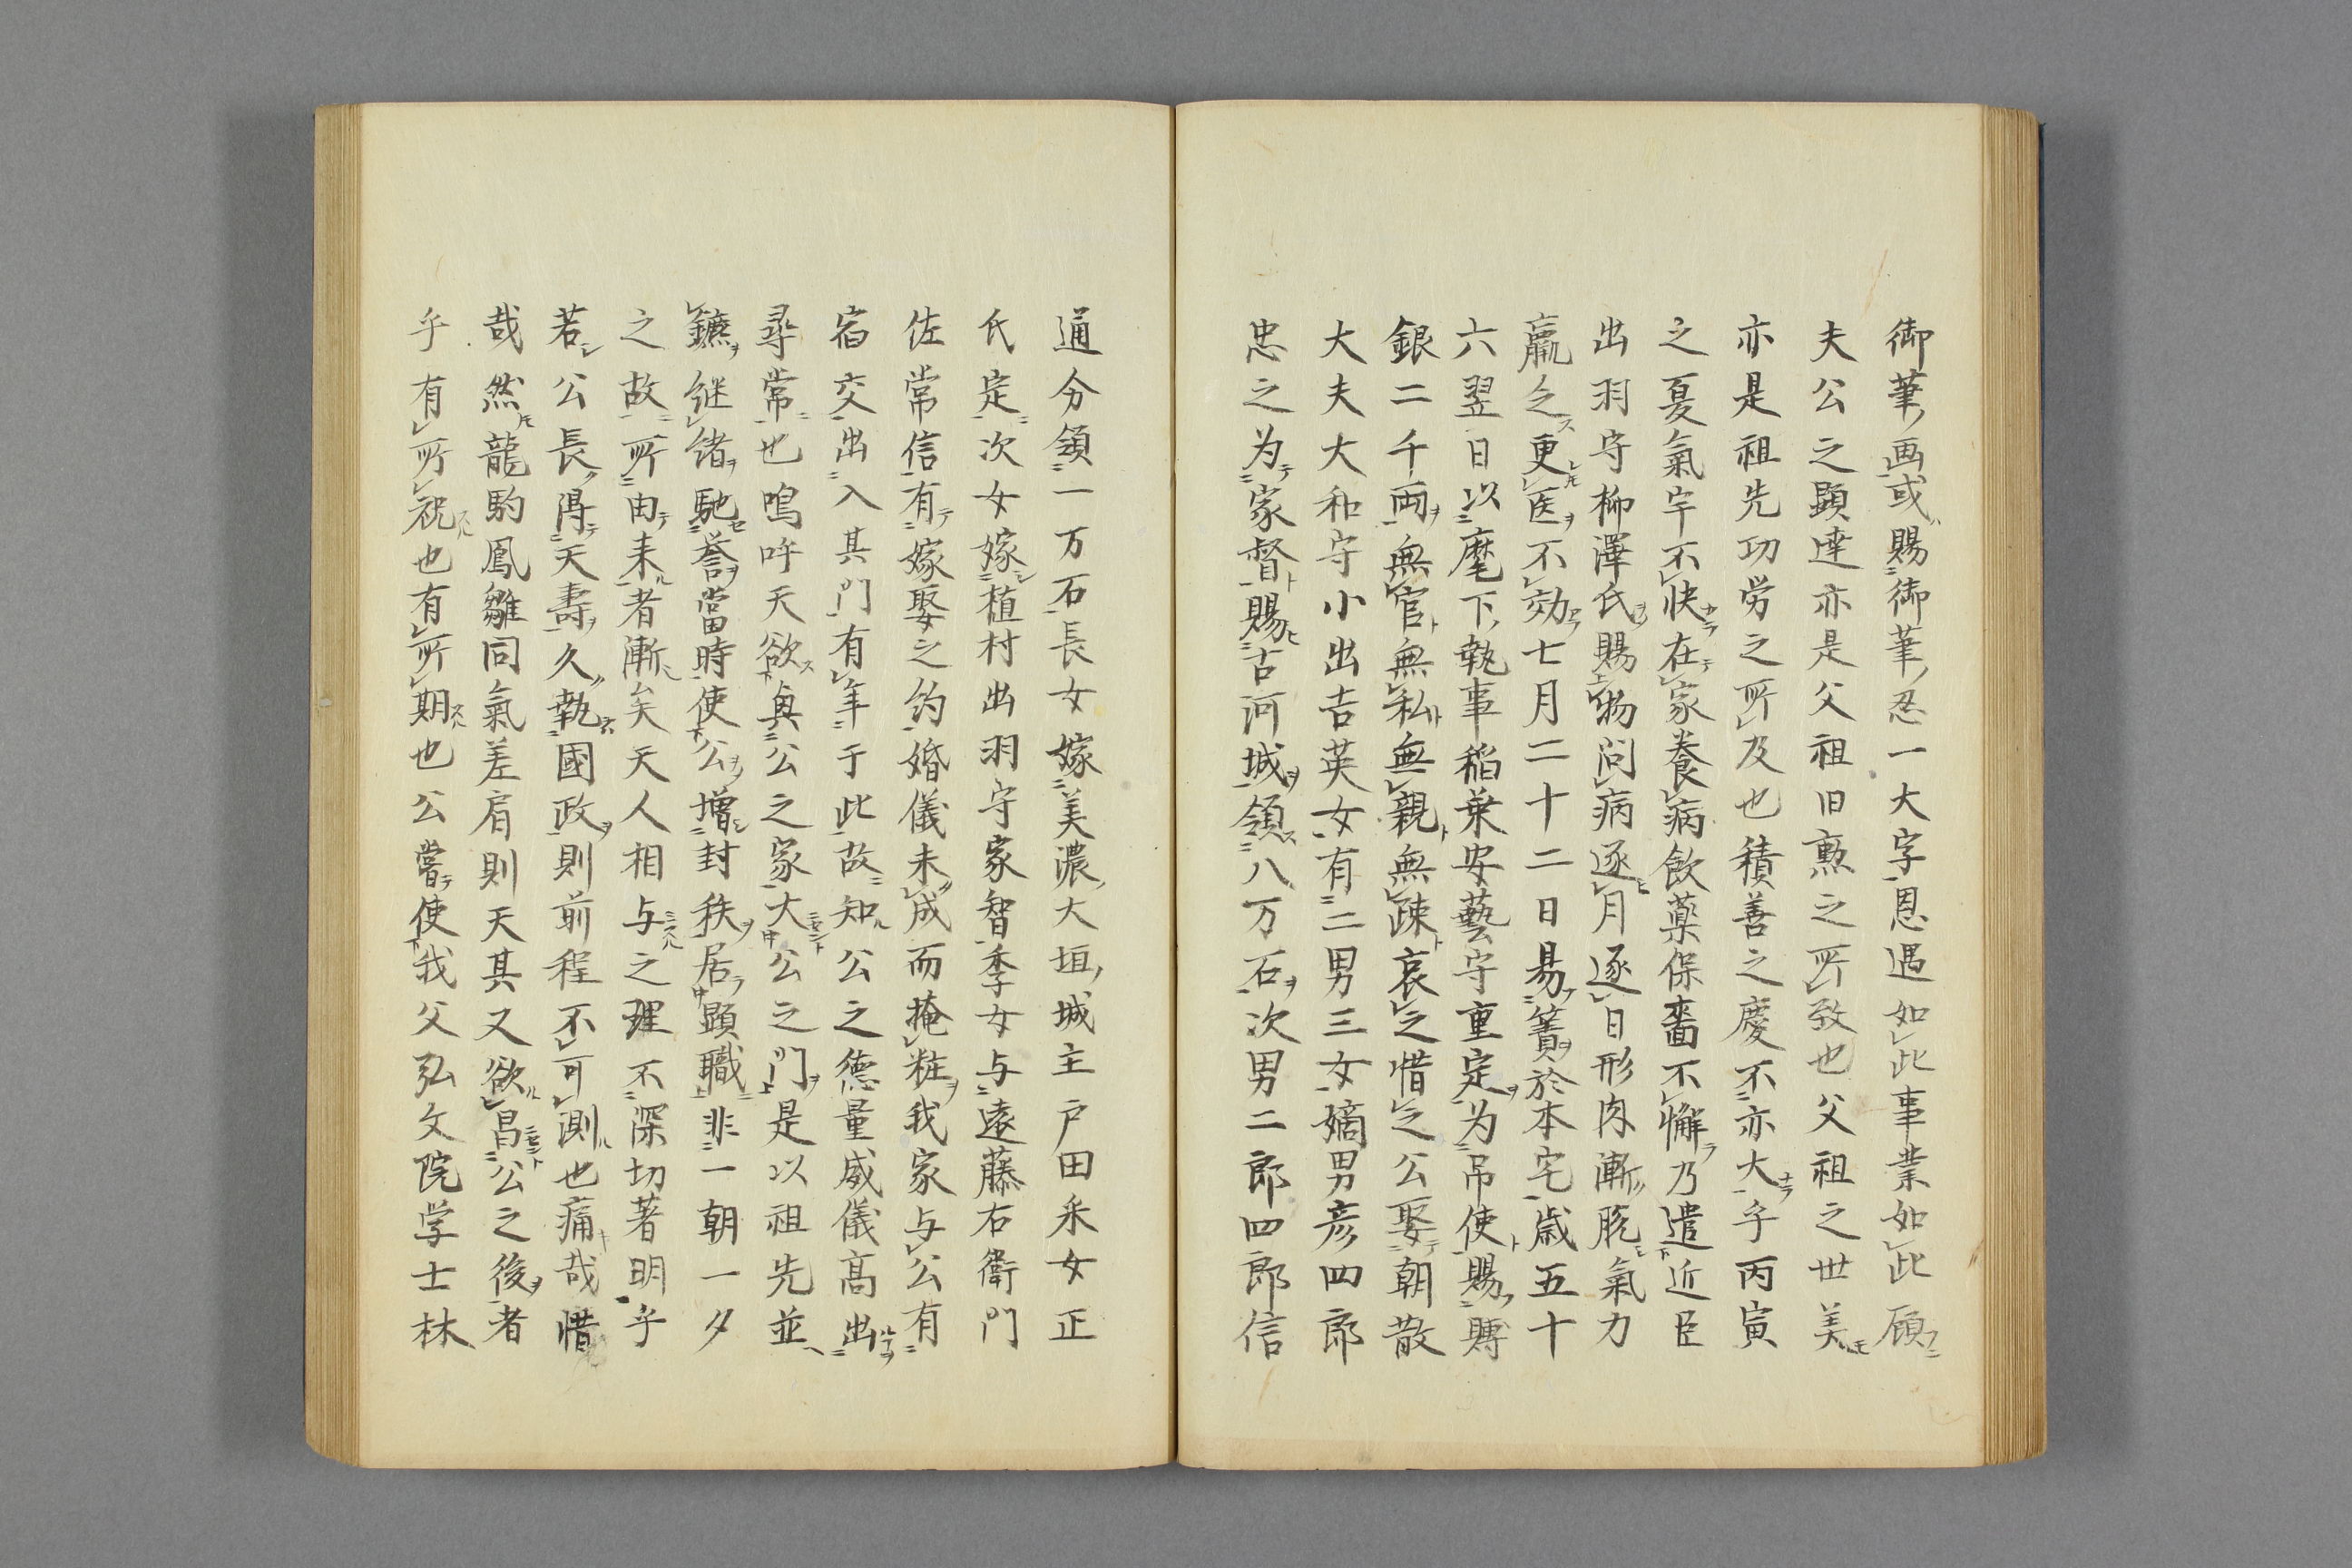 御筆画或賜御筆忍一大字恩遇如此事業如此顧
夫公之顕達亦是父祖旧勲之所致也父祖之世美
亦是祖先功労之所及也積善之慶不亦大乎丙寅
之夏氣宇不快在家養病飲薬保嗇不懈乃遣近臣
出羽守柳澤氏賜物问病逐月逐日形肉漸脱氣力
羸乏更医不効七月二十二日易簀於本宅歳五十
六翌日以麾下執事稲葉安藝守重定为吊使賜賻
銀二千両無官無私無親無疎哀之惜之公娶朝散
大夫大和守小出吉英女有二男三女嫡男彦四郎
忠之为家督賜古河城領八万石次男二郎四郎信
通分領一万石長女嫁美濃大垣城主戸田采女正
氏定次女嫁植村出羽守家智季女与遠藤右衛門
佐常信有嫁娶之約婚儀未成而掩粧我家与公有
宿交出入其門有年于此故知公之德量威儀高出
尋常也嗚呼天欲與公之家大公之門是以祖先並
鑣継緒馳誉當時使公増封秩居顕職非一朝一夕
之故所由来者漸矣天人相与之理不深切著明乎
若公長得天壽久執國政則前程不可測也痛哉惜
哉然龍駒鳳雛同氣差肩則天其又欲昌公之後者
乎有所祝也有所期也公嘗使我父弘文院学士林